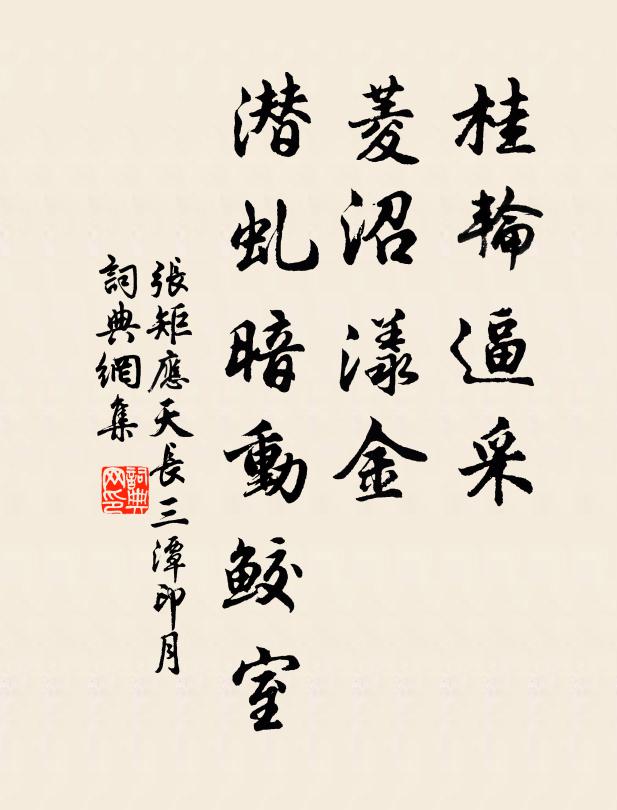 桂輪逼采
菱沼漾金
潛虬暗動鮫室
張矩應天長三潭印月
詞典網集
詞典网印